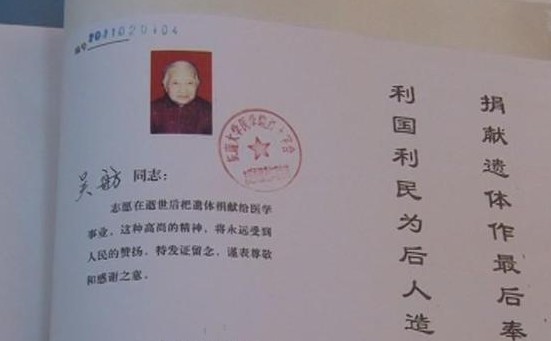 编号 2011020104
东南大学医学院红十字会
吴舫 同志:
志愿在逝世后把遗体捐献给医学
事业，这种高尚的精神，将永远受到
人民的赞扬，特发证留念，谨表尊敬
和感谢之意。
捐献遗体作最后奉
利国利民为后人造